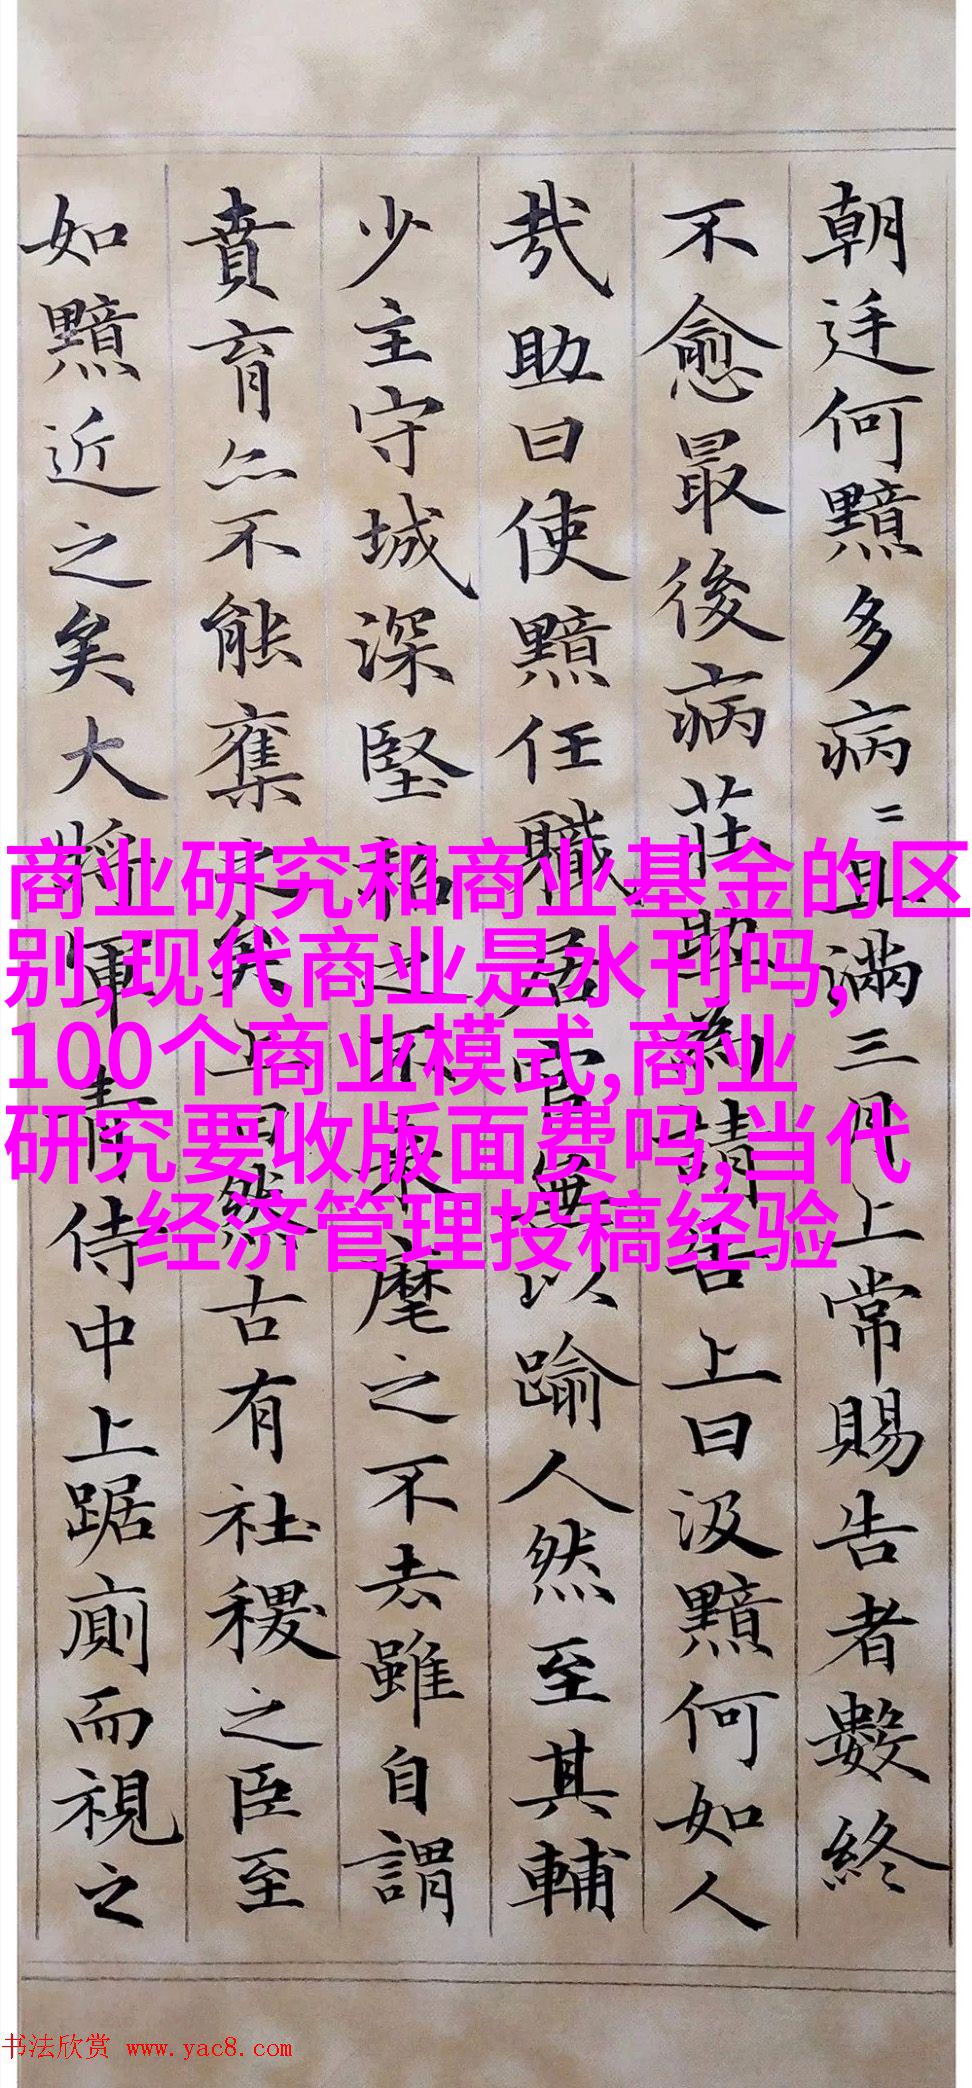 朝廷何黯多病〻且滿三月上常賜告者數終
不愈最後病莊助為請告上曰汲黯何如人
哉助曰使黯任職居官無以踰人然至其輔
少主守城深堅招之不來麾之不去雖自謂
賁育亦不能奪之矣上曰然古有社稷之臣至
如黯近之矣大將軍青侍中上踞廁而視之
商业研究和商业基金的区
别,现代商业是水刊吗,
100个商业模式,商业
研究要收版面费吗,当代
经济管理投稿经验
书法欣赏 www.yac8.com